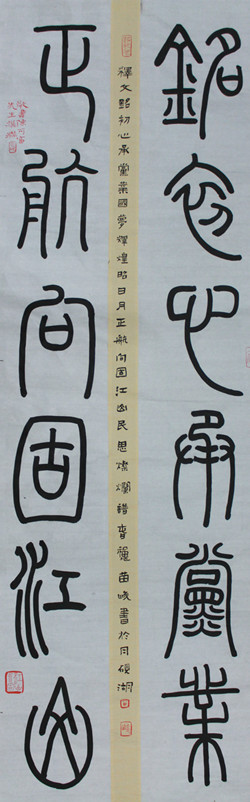 銘初心承黨業
釋文銘初心承黨業國夢輝煌昭日月正航向固江山民思燦爛譜書於湖
正航向固江山
先生撰聯